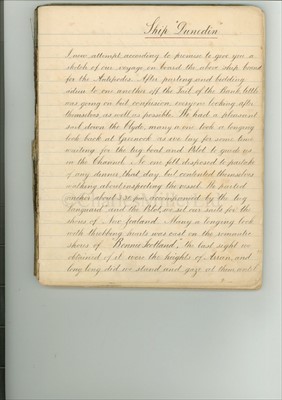 Ship "Dunedin"
I now attempt according to promise to give you a
sketch of our voyage on board the above ship bound
for the Antipodes. After parting and bidding
adieu to one another off the Tail of the Bank little
was going on but confusion, everyone looking after
themselves, as well as possible. We had a pleasant
sail down the Clyde, many a one took a longing
look back at Greenock as we lay for some time
waiting for the tug boat and Pilot to guide us
in the Channel. No one felt disposed to partake
of any dinner that day but contented themselves
walking about inspecting the vessel. We hoisted
anchor about 3.30 p.m. accompanied by the tug
Vanguard and the Pilot, we set our sails for the
shores of New Zealand. Many a longing look
with throbbing hearts was cast on the romantic
shores of "Bonnie Scotland". The last sight we
obtained of it were the heights of Arran, and
long long did we stand and gaze at them until